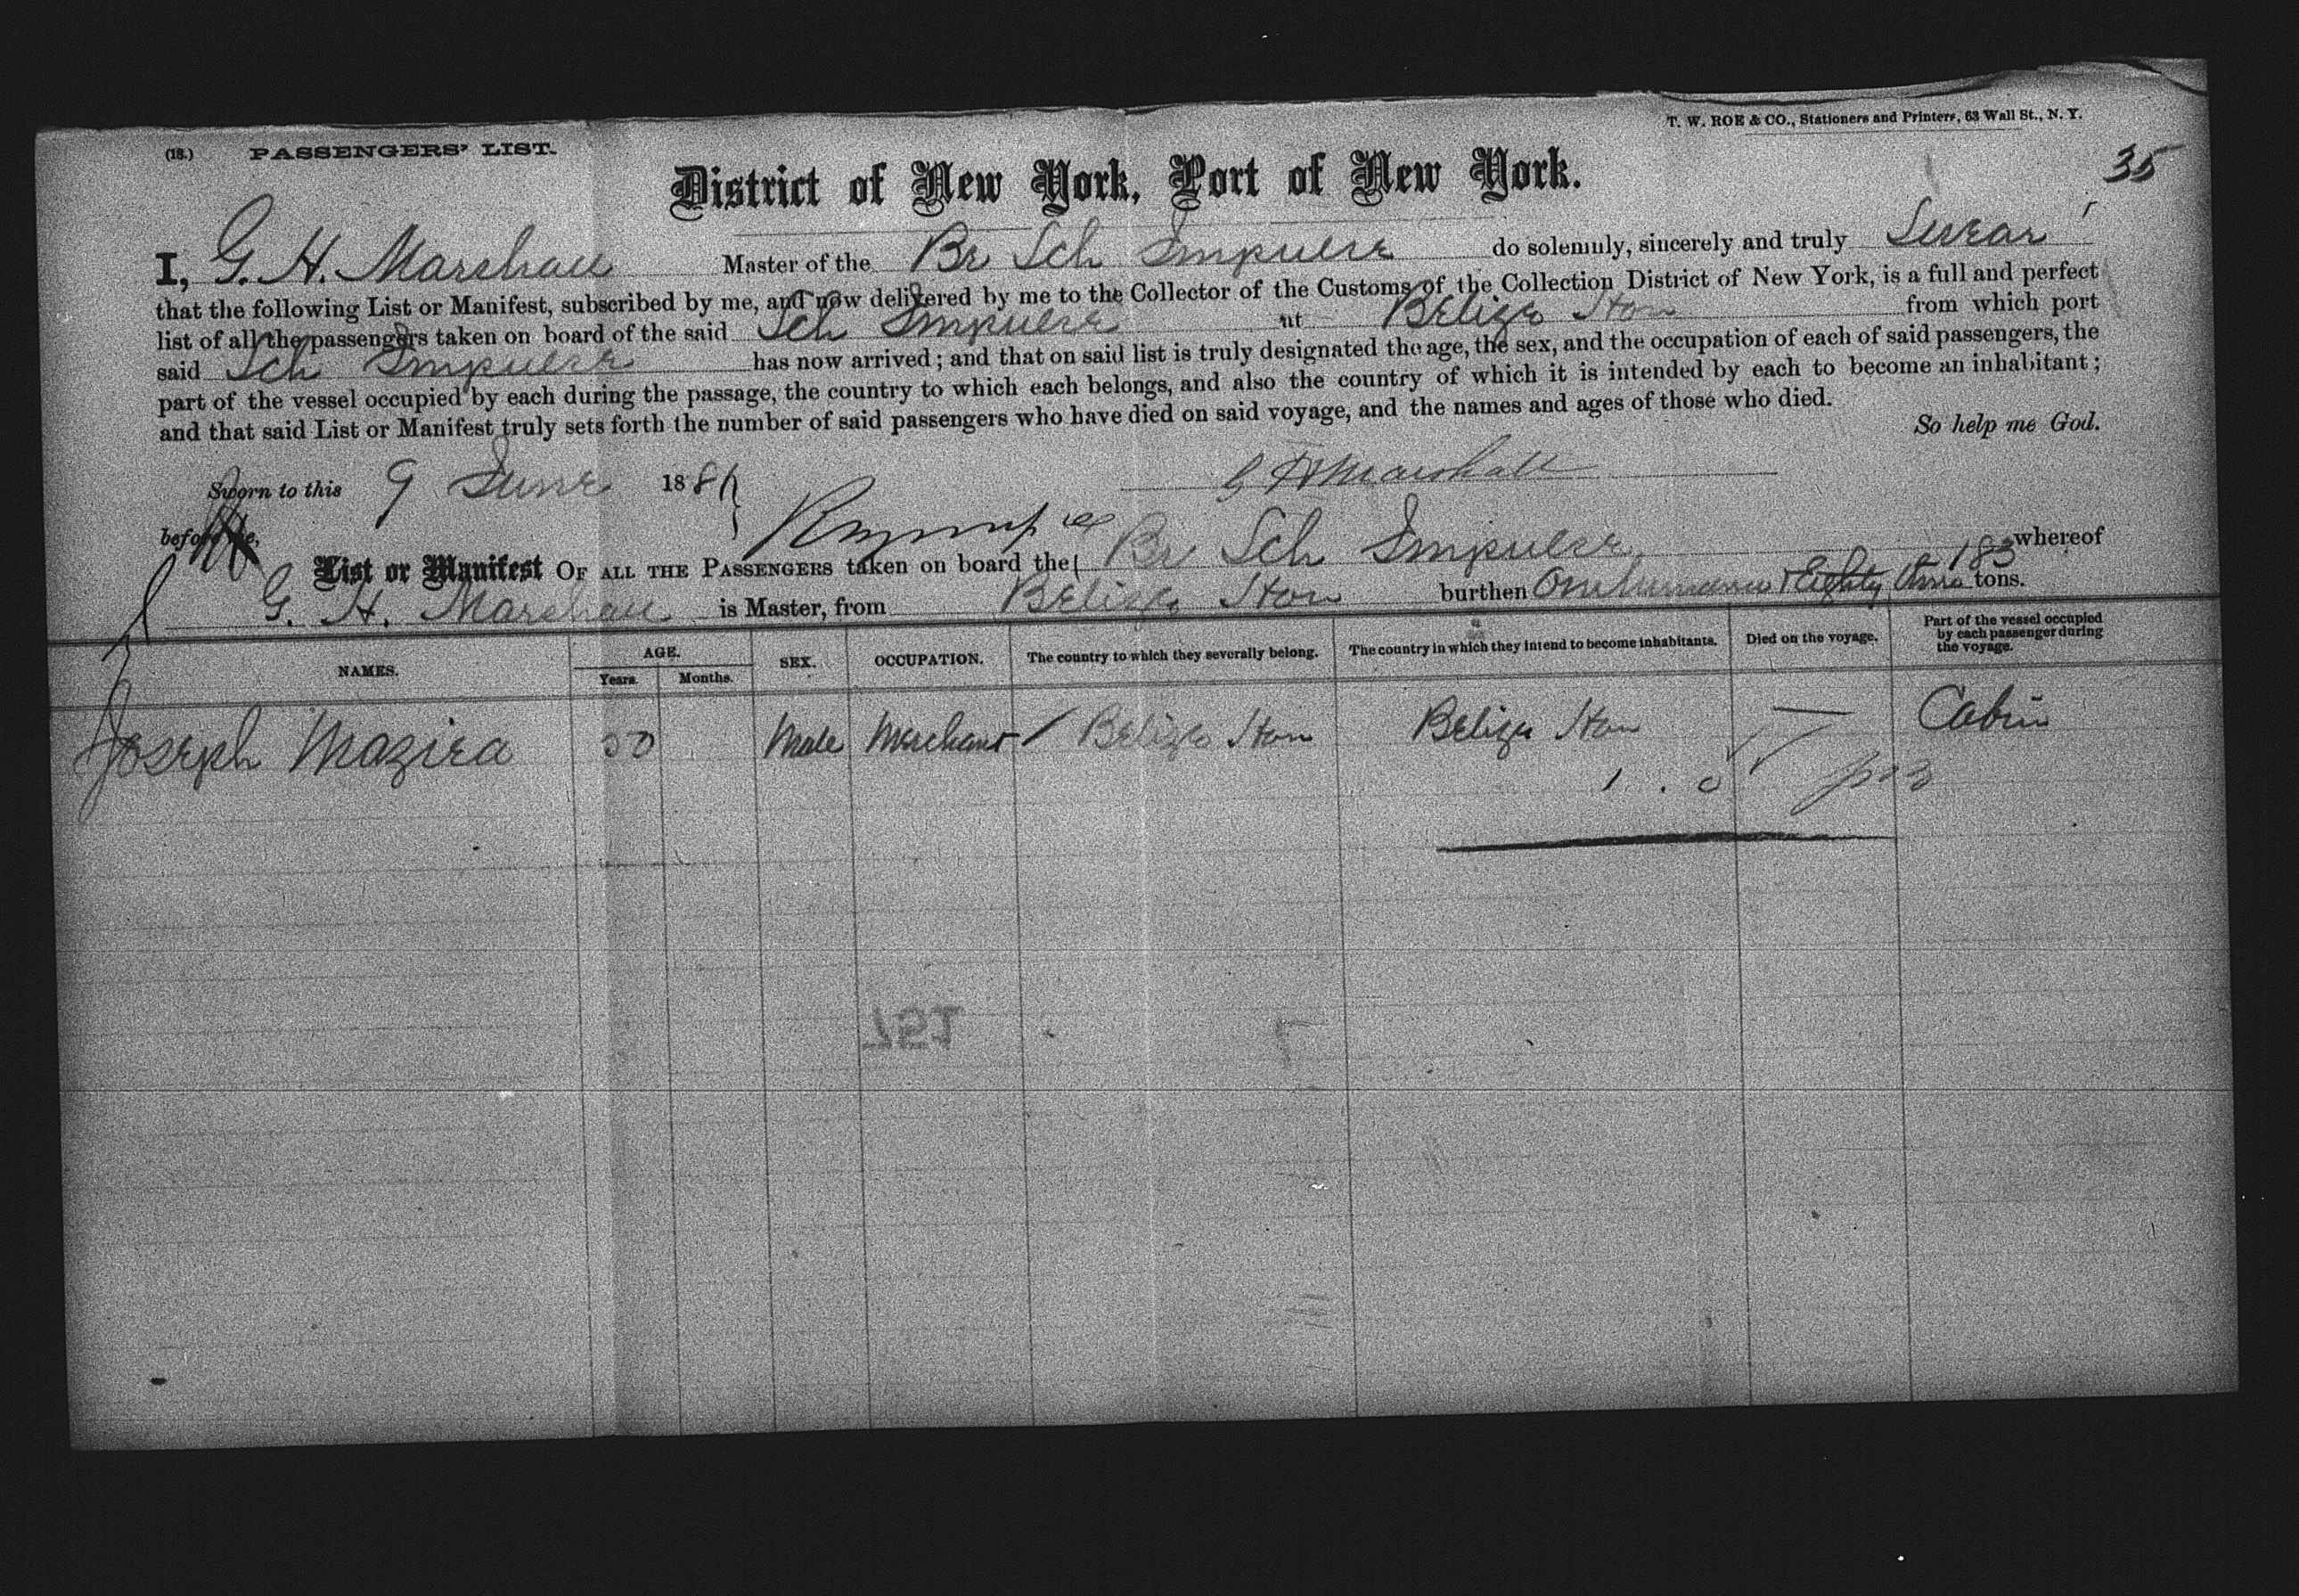 T. W. ROE & CO., Stationers and Printers, 63 Wall St., N. Y.
(18.) PASSENGERS' LIST.
35
District of New York, Port of New York.
I, G. H. Marshall Master of the Br Sch Impulse do solemnly, sincerely and truly Swear
that the following List or Manifest, subscribed by me, and now delivered by me to the Collector of the Customs of the Collection District of New York, is a full and perfect
list of all the passengers taken on board of the said Sch Impulse at Belize Hon from which port
said Sch Impulse has now arrived; and that on said list is truly designated the age, the sex, and the occupation of each of said passengers, the
part of the vessel occupied by each during the passage, the country to which each belongs, and also the country of which it is intended by each to become an inhabitant;
and that said List or Manifest truly sets forth the number of said passengers who have died on said voyage, and the names and ages of those who died.
So help me God.
Sworn to this 9 June 188
G H Marshall
before me,
List or Manifest OF ALL THE PASSENGERS taken on board the Br Sch Impulse whereof
183
G. H. Marshall is Master, from Belize Hon burthen One hundred & Eighty three tons.
NAMES. AGE. Years. Months. SEX. OCCUPATION. The country to which they severally belong. The country in which they intend to become inhabitants. Died on the voyage. Part of the vessel occupied by each passenger during the voyage.
Joseph Mazica Male Merchant Belize Hon Belize Hon — Cabin
151